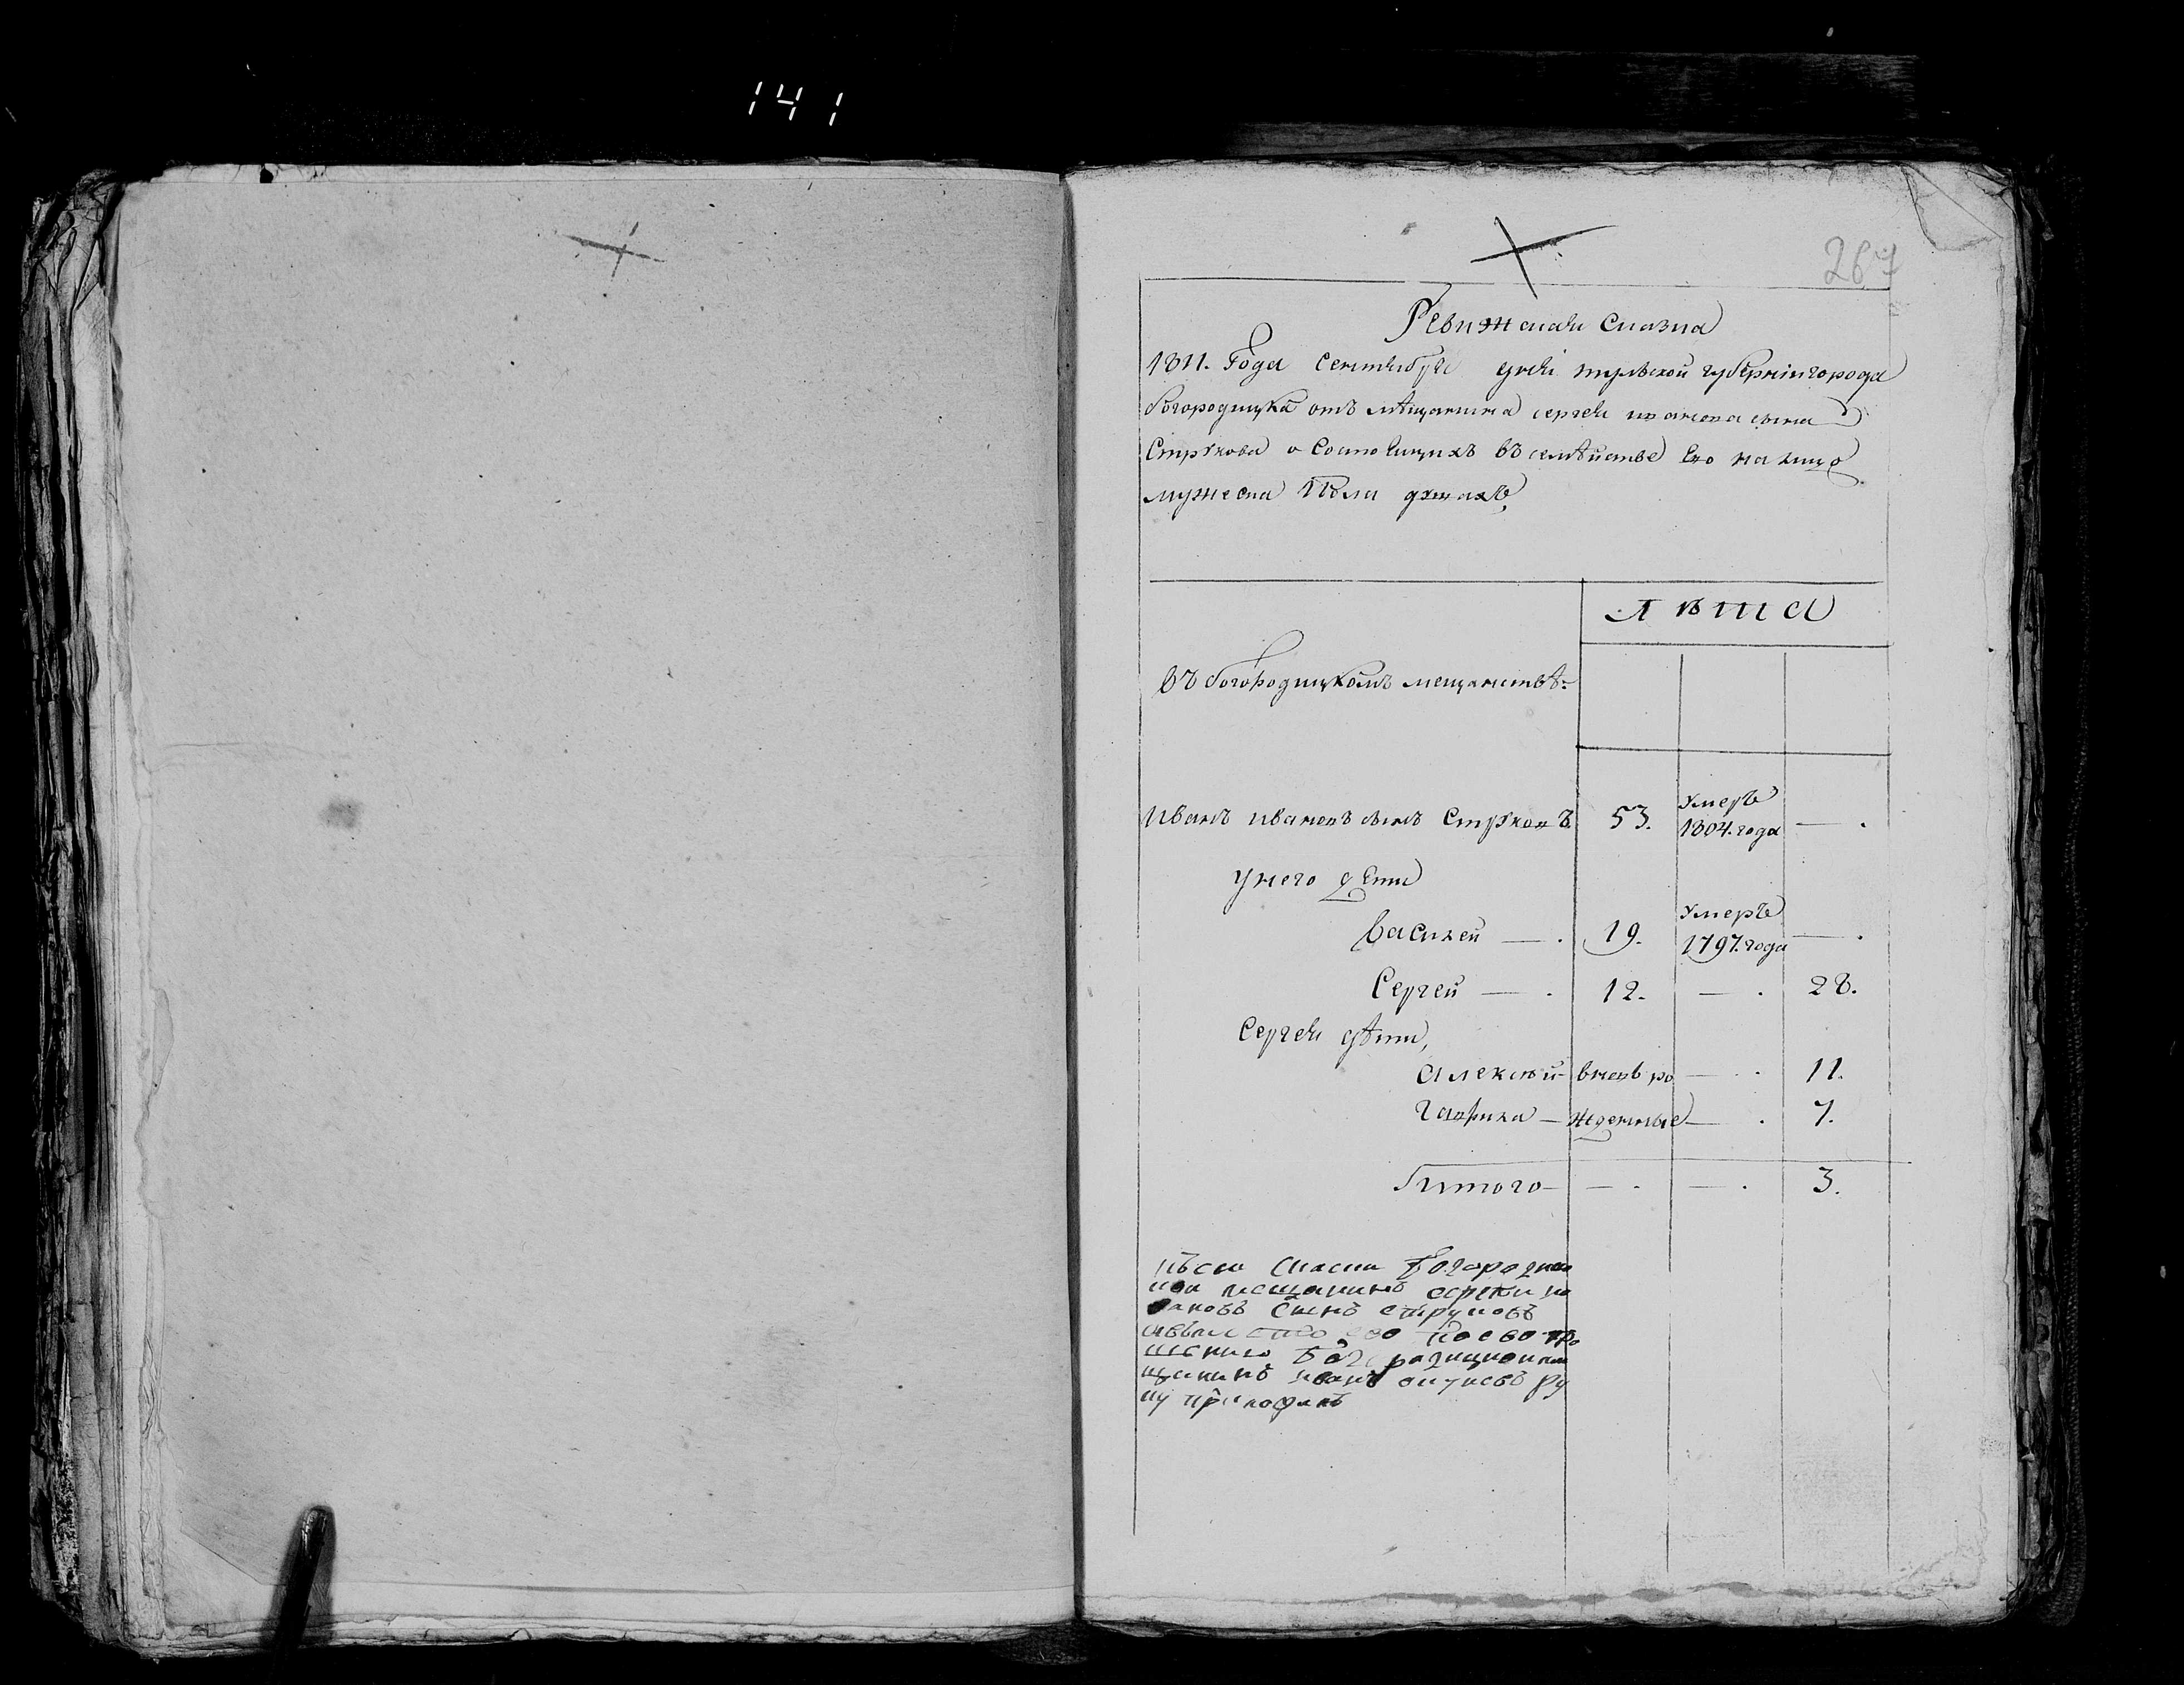 141
267
Ревижская Сказка
1811. Года сентября дня тульской губернии города
богородицка отъ мѣщанина сергея иванова сына
Струкова о Состоящихъ въ семѣйстве Его на лицо
мужеска Пола душахъ,
Лѣта
въ богородицкомъ мещанствѣ
иванъ ивановъ сынъ Струковъ 53. Умеръ 1804. года — .
у него дети
василей — . 19. Умеръ 1797. года — .
Сергей — . 12. — . 28.
Сергея дѣти,
алексѣй - вновь ро — . 11.
гаврила — жденные — . 7.
Итого — — . — . 3.
къ сей скаски Богородиц
кой мещанинъ сергѣи и
вановъ сынъ струковъ
а вместо ево по ево про
шению Бог родицкои ме
щининъ иванъ ру
ку приложилъ